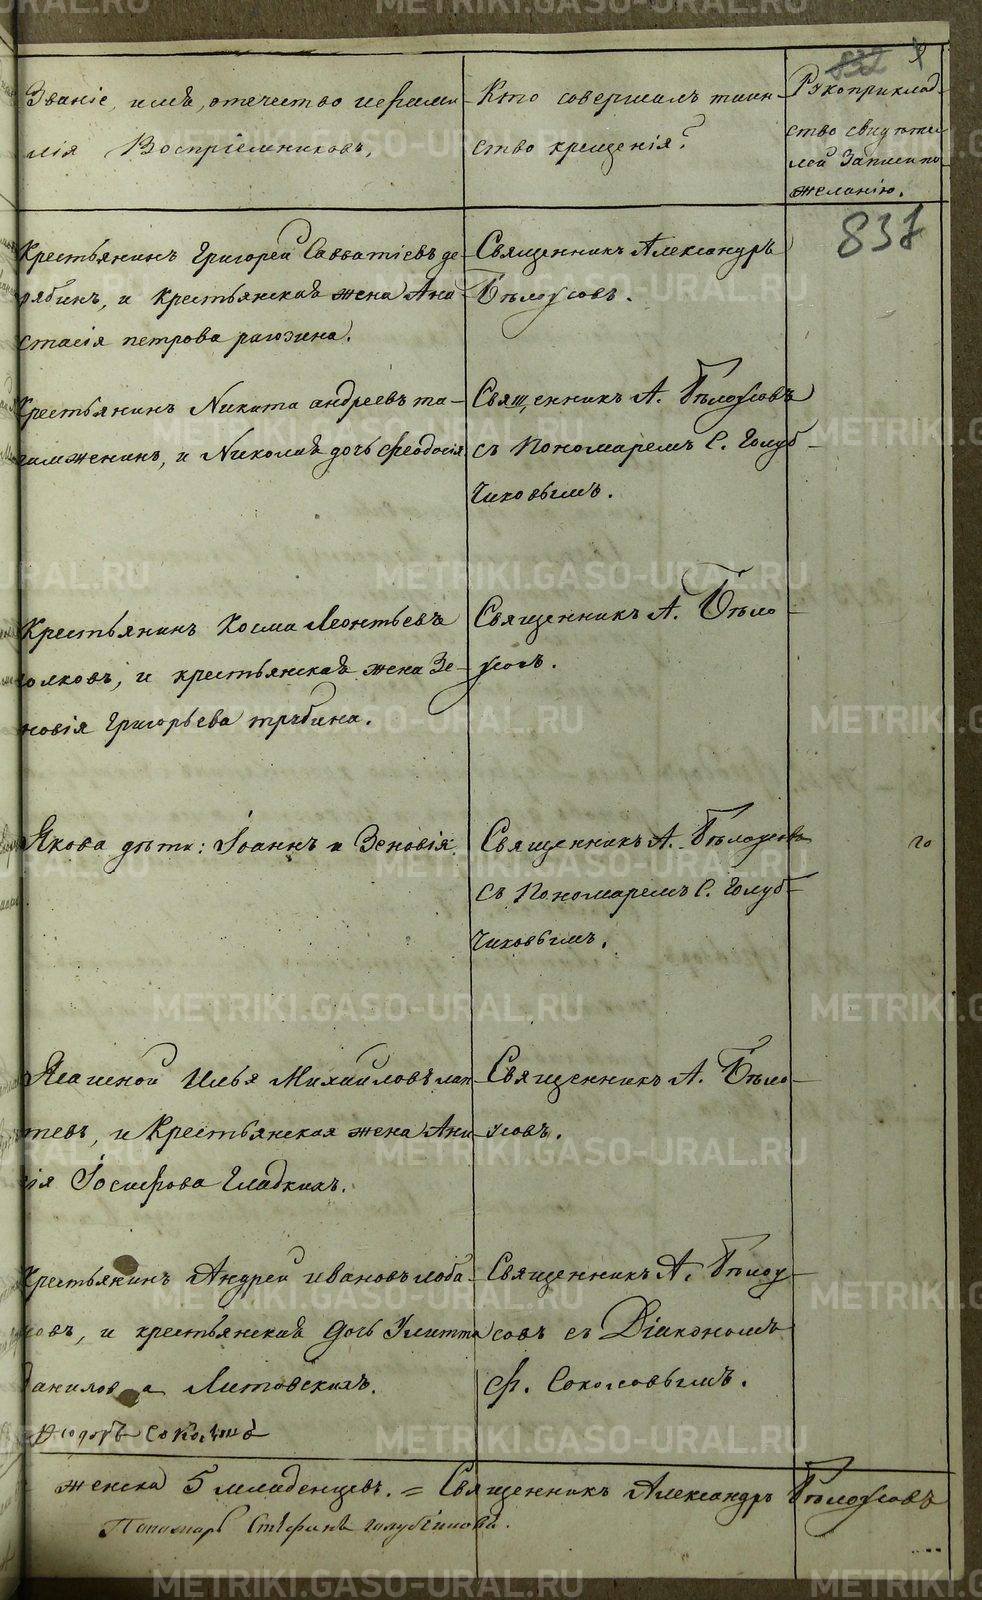 832
837
Званіе, имя, отечество и фами-
лія Воспріемниковъ.
Кто совершалъ таин-
ство крещенія?
Рукоприклад-
ство свидѣте-
лей записи по
желанію.
Крестьянинъ Григорей Савватіевъ де-
рябинъ, и крестьянская жена Ана-
стасія петрова рагозина.
Священникъ Александръ
Бѣлоусовъ.
Крестьянинъ Никита андреевъ та-
и Николая дочь Феодосія
Свящ,енникъ А. Бѣлоусовъ
съ Пономаремъ С. Голуб-
чиковымъ.
Крестьянинъ Косма Леонтьевъ
волковъ, и крестьянская жена Зе-
новія Григорьева
Священникъ А. Бѣло-
усовъ.
Якова дѣти: Іоаннъ и Зеновія.
Священникъ А. Бѣлоусовъ
съ Пономаремъ С. Голуб-
чиковымъ.
Ясашной Илья Михайловъ лап-
тевъ, и Крестьянская жена
Іосифова Гладкихъ.
Священникъ А. Бѣло-
усовъ.
Крестьянинъ Андрей ивановъ лоба-
новъ, и крестьянская дочь Улитта
данилова Литовскихъ.
Священникъ А. Бѣлоу-
совъ съ Діакономъ
Ф. Соколовымъ.
женска 5 младенцевъ. = Священникъ Александръ Бѣлоусовъ
Пономарь Стефанъ голубчиковъ.
METRIKI.GASO-URAL.RU